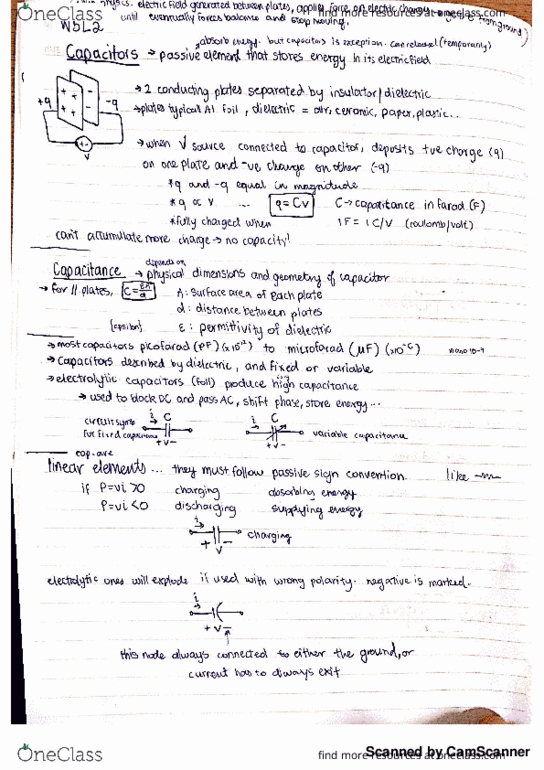 OneClass
find more resources at oneclass.com
physics: electric field generated between plates, applies force on electric charges
until eventually forces balance and stop moving.
W5L2
absorb energy. but capacitors is exception. can release (temporarily)
Capacitors → passive element that stores energy in its electric field
→ 2 conducting plates separated by insulator/dielectric
→ plates typical Al foil, dielectric = air, ceramic, paper, plastic...
+q
-q
V
→ when V source connected to capacitor, deposits +ve charge (q)
on one plate and -ve charge on other (-q)
* q and -q equal in magnitude
* q ∝ V ... q = CV C → capacitance in farad (F)
* fully charged when 1F = 1C/V (coulomb/volt)
can't accumulate more charge → no capacity!
depends on
Capacitance → physical dimensions and geometry of capacitor
→ for // plates, C = εA/d A: surface area of each plate
d: distance between plates
[epsilon] ε: permittivity of dielectric
→ most capacitors picofarad (pF) (x10⁻¹²) to microfarad (μF) (x10⁻⁶) nano 10⁻⁹
→ capacitors described by dielectric, and fixed or variable
→ electrolytic capacitors (foil) produce high capacitance
→ used to block DC and pass AC, shift phase, store energy...
circuit symb
for fixed capacitance
i C
+ V -
i C
+ V -
variable capacitance
cap. are
linear elements... they must follow passive sign convention. like
if P=vi >0 charging absorbing energy
P=vi <0 discharging supplying energy
i
+ V -
charging
electrolytic ones will explode if used with wrong polarity. negative is marked.
i
+ V -
this node always connected to either the ground, or
current has to always exit
OneClass
find more resources at oneclass.com
Scanned by CamScanner